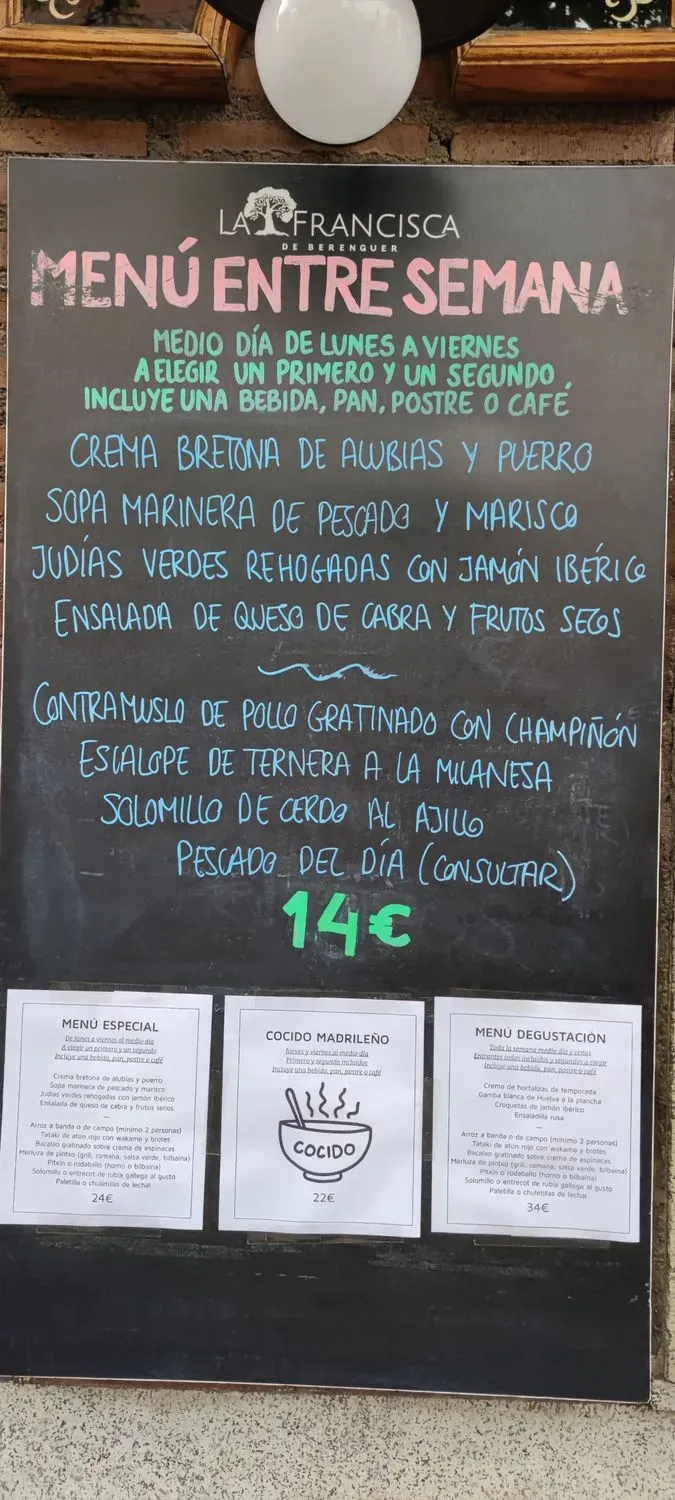 LA FRANCISCA
DE BERENGUER
MENÚ ENTRE SEMANA
MEDIO DÍA DE LUNES A VIERNES
A ELEGIR UN PRIMERO Y UN SEGUNDO.
INCLUYE UNA BEBIDA, PAN, POSTRE O CAFÉ
CREMA BRETONA DE ALUBIAS Y PUERRO
SOPA MARINERA DE PESCADO Y MARISCO
JUDÍAS VERDES REHOGADAS CON JAMÓN IBÉRICO
ENSALADA DE QUESO DE CABRA Y FRUTOS SECOS
CONTRAMUSLO DE POLLO GRATINADO CON CHAMPIÑÓN
ESCALOPE DE TERNERA A LA MILANESA
SOLOMILLO DE CERDO AL AJILLO
PESCADO DEL DÍA (CONSULTAR)
14€
MENÚ ESPECIAL
De lunes a viernes al medio día
A elegir un primero y un segundo
Incluye una bebida, pan, postre o café
Crema bretona de alubias y puerro
Sopa marinera de pescado y marisco
Judías verdes rehogadas con jamón ibérico
Ensalada de queso de cabra y frutos secos
—
Arroz a banda o de campo (mínimo 2 personas)
Tataki de atún rojo con wakame y brotes
Bacalao gratinado sobre crema de espinacas
Merluza de pintxo (grill, romana, salsa verde, bilbaína)
Pitxin o rodaballo (horno o bilbaína)
Solomillo o entrecot de rubia gallega al gusto
Paletilla o chuletillas de lechal
24€
COCIDO MADRILEÑO
Jueves y viernes al medio día
Primero y segundo incluidos
Incluye una bebida, pan, postre o café
COCIDO
22€
MENÚ DEGUSTACIÓN
Toda la semana medio día y cenas
Entrantes todos incluidos y segundos a elegir
Incluye una bebida, pan, postre o café
Crema de hortalizas de temporada
Gamba blanca de Huelva a la plancha
Croquetas de jamón ibérico
Ensaladilla rusa
—
Arroz a banda o de campo (mínimo 2 personas)
Tataki de atún rojo con wakame y brotes
Bacalao gratinado sobre crema de espinacas
Merluza de pintxo (grill, romana, salsa verde, bilbaína)
Pitxin o rodaballo (horno o bilbaína)
Solomillo o entrecot de rubia gallega al gusto
Paletilla o chuletillas de lechal
34€